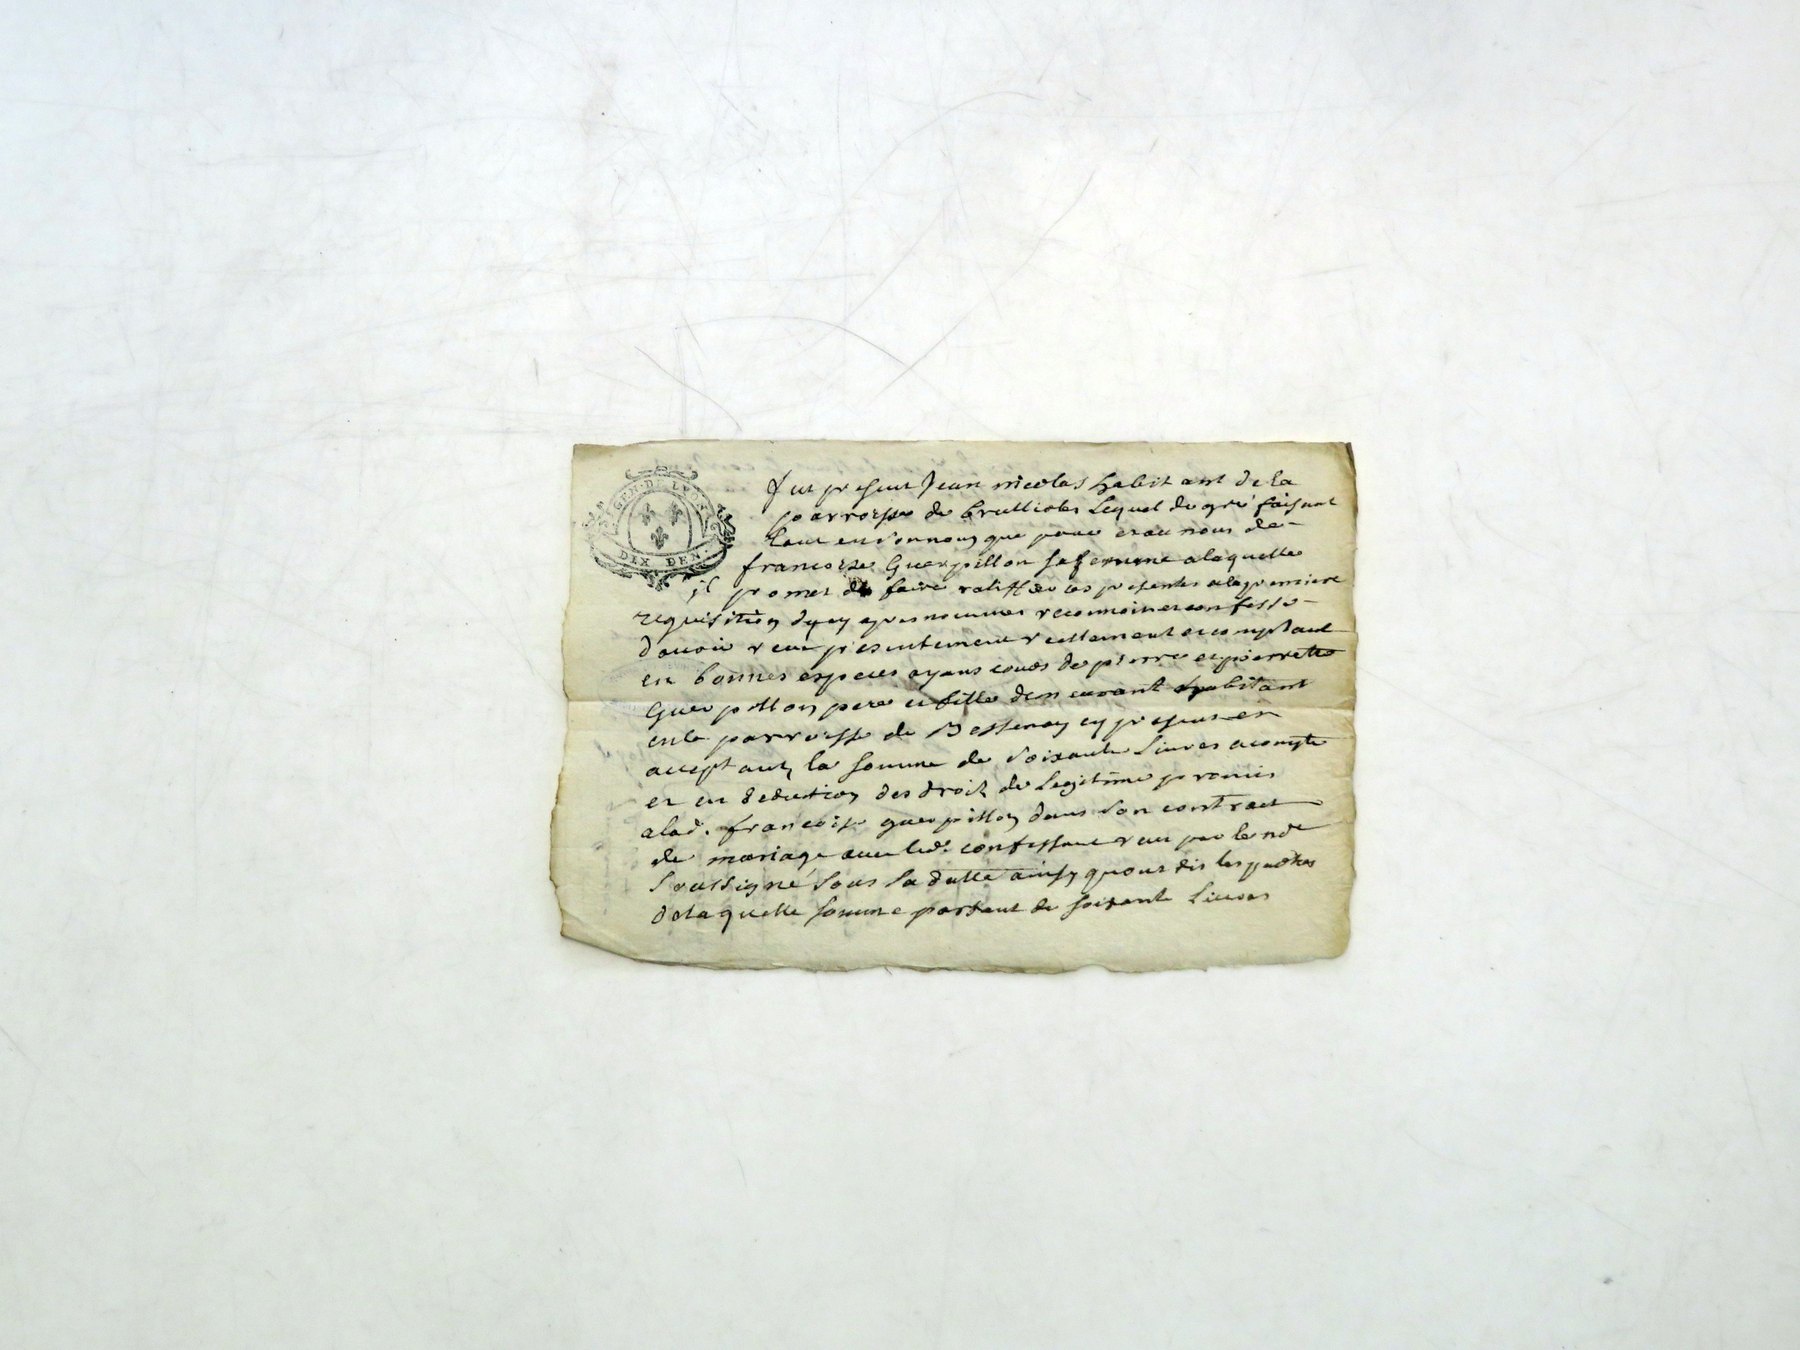 GEN. DE LYON
DIX DEN.
fut present Jean nicolas habitant de la
parroisse de brullioles Lequel de gré faisant
tant en son nom que pour et au nom de
francoise Guerpillon sa femme a laquelle
il promet de faire ratiffier ces presentes a la premiere
requisition
d'avoir reçu presentement reellement et comptant
en bonnes especes ayans cours de pierre et pierrette
Guerpillon pere et fille demeurant habitant
en la parroisse de Bessenay cy present et
acceptant la somme de soixante livres a compte
et en deduction des droit de Legitime promis
a lad. francoise guerpillon dans son contract
de mariage avec led. confessant reçu par le no.re
soussigné sous sa datte ainsy qu'ont dit les parties
de laquelle somme portant de soixante livres